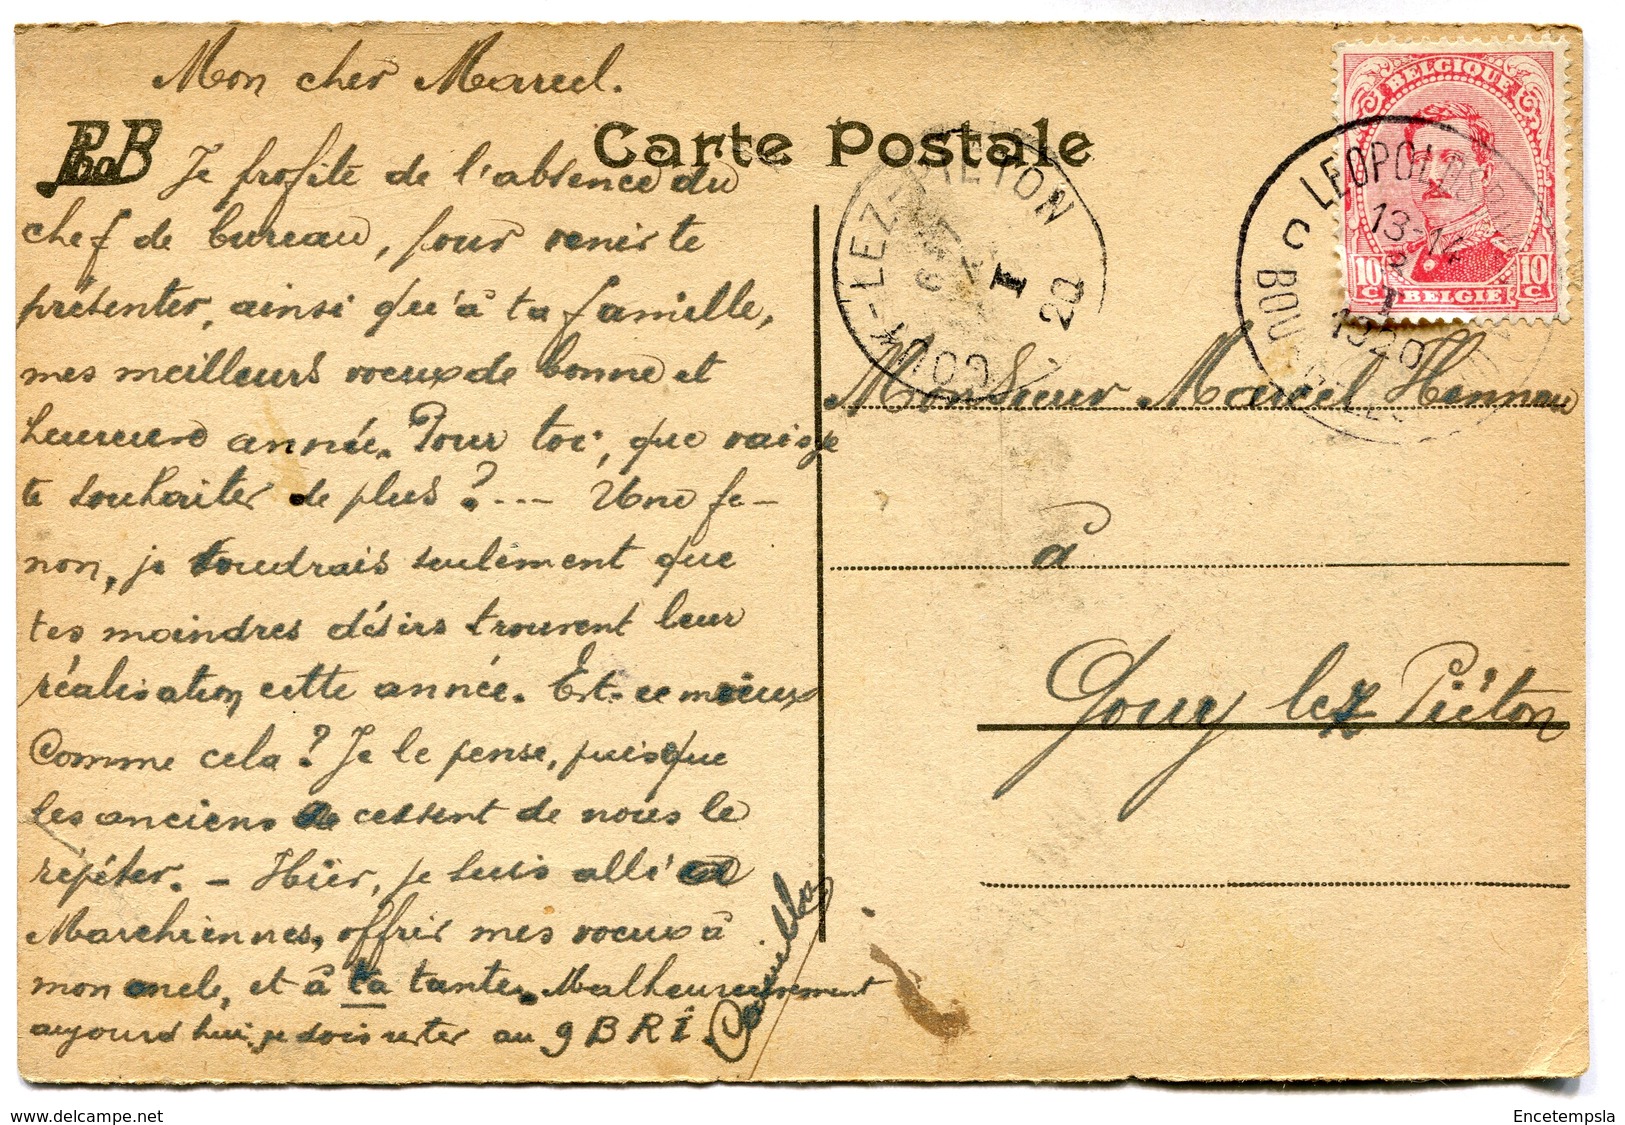 Mon cher Marcel.
PhoB
Carte Postale
Je profite de l'absence du
chef de bureau, pour venir te
présenter, ainsi qu'à ta famille,
mes meilleurs voeux de bonne et
heureuse année. Pour toi, que vais-je
te souhaiter de plus ?... Une fe-
non, je voudrais seulement que
tes moindres désirs trouvent leur
réalisation cette année. Est-ce mieux
comme cela ? Je le pense, puisque
les anciens cessent de nous le
répéter. - Hier, je suis allé à
Marchiennes, offrir mes voeux à
mon oncle, et à ta tante. Malheureusement
aujourd'hui, je dois rester au 9 BRI.
Camille
GOUY-LEZ-PIETON
I
20
LEOPOLDSBURG
13-14
2
I
1920
BOURG-LEOPOLD
BELGIQUE
10 c
BELGIE
10 c
Monsieur Marcel Hennau
à
Gouy lez Piéton
delcampe.net
Encetempsla